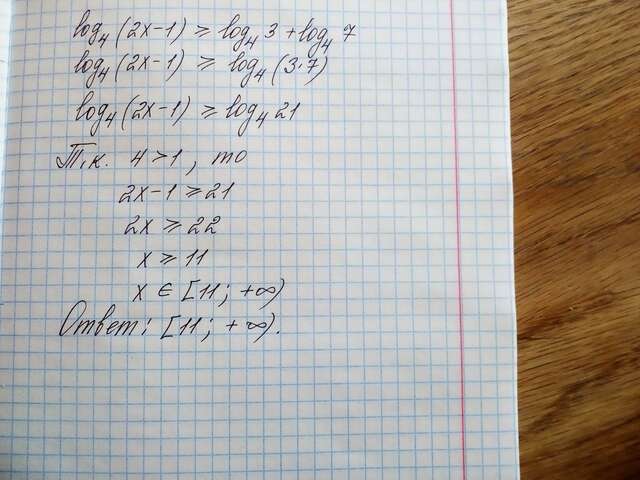 log₄(2x-1) ≥ log₄3 + log₄7
log₄(2x-1) ≥ log₄(3·7)
log₄(2x-1) ≥ log₄21
Т.к. 4>1, то
2x-1 ≥ 21
2x ≥ 22
x ≥ 11
x ∈ [11; +∞)
Ответ: [11; +∞).